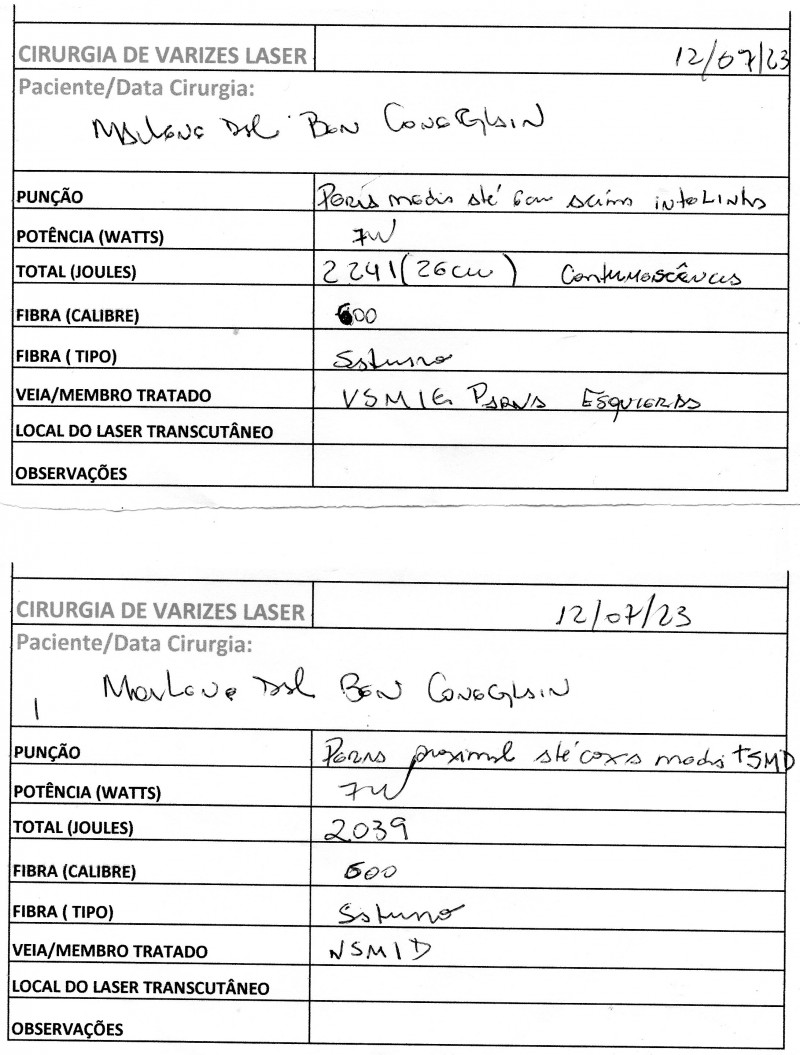 CIRURGIA DE VARIZES LASER 12/07/23
Paciente/Data Cirurgia:
Marlene Dal Bon Conaglain
PUNÇÃO Perna media até 6cm acima
POTÊNCIA (WATTS) 7W
TOTAL (JOULES) 2241 (26cm)
FIBRA (CALIBRE) 600
FIBRA ( TIPO)
VEIA/MEMBRO TRATADO VSMIE Perna Esquerda
LOCAL DO LASER TRANSCUTÂNEO
OBSERVAÇÕES
CIRURGIA DE VARIZES LASER 12/07/23
Paciente/Data Cirurgia:
Marlene Dal Bon Conaglain
PUNÇÃO Perna proximal até coxa media + SMD
POTÊNCIA (WATTS) 7W
TOTAL (JOULES) 2039
FIBRA (CALIBRE) 600
FIBRA ( TIPO)
VEIA/MEMBRO TRATADO VSMID
LOCAL DO LASER TRANSCUTÂNEO
OBSERVAÇÕES